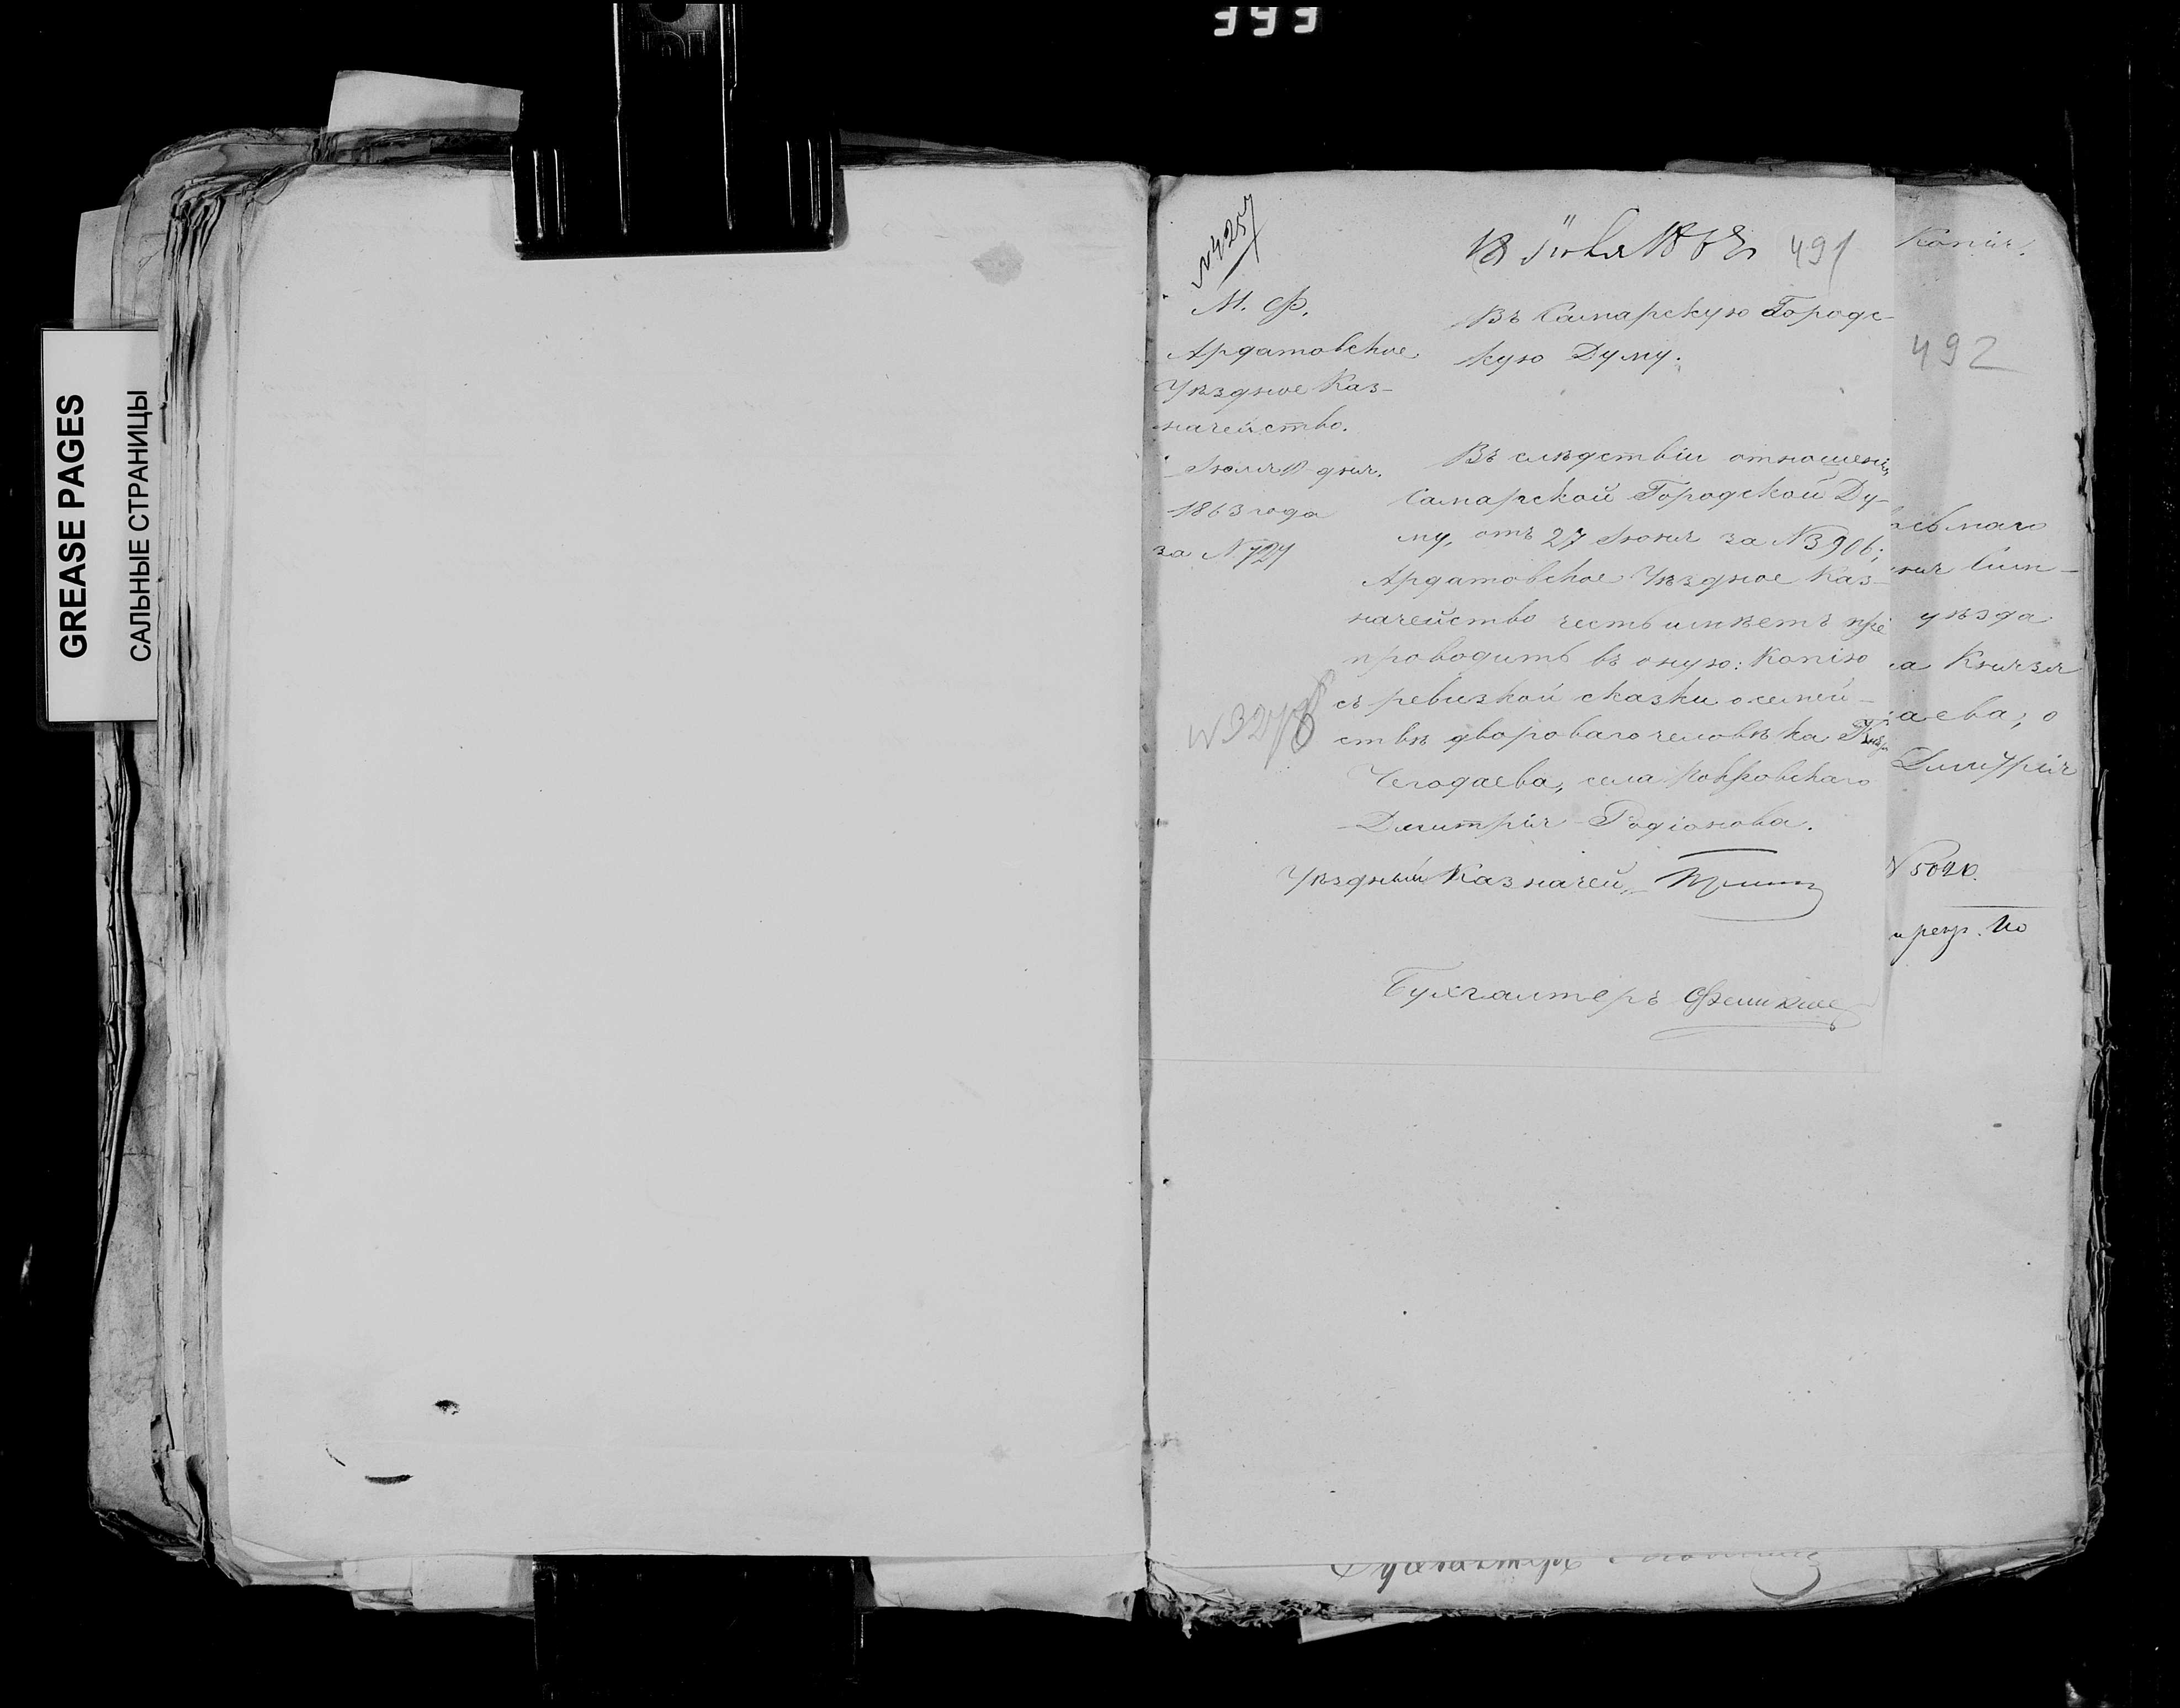 399
GREASE PAGES
САЛЬНЫЕ СТРАНИЦЫ
№4257
18 Іюля 1863
491
М. Ф.
Ардатовское
Уѣздное Каз-
начейство.
Іюля 18 дня.
1863 года
за № 727
Въ Самарскую Городс-
кую Думу.
Въ слѣдствіи отношенія
Самарской Городской Ду-
му, отъ 27 Іюня за №3906;
Ардатовское Уѣздное Каз-
начейство честь имѣетъ пре
проводить въ оную: Копію
съ ревизкой сказки о семей-
ствѣ двороваго человѣка
Чегодаева, села Покровскаго
Дмитрія Родіонова.
№3278
Уѣздный Казначей
Бухгалтеръ
Копія.
492
сьмаго
Сим-
уѣзда
Князя
аева; о
Дмитрія
№5020.